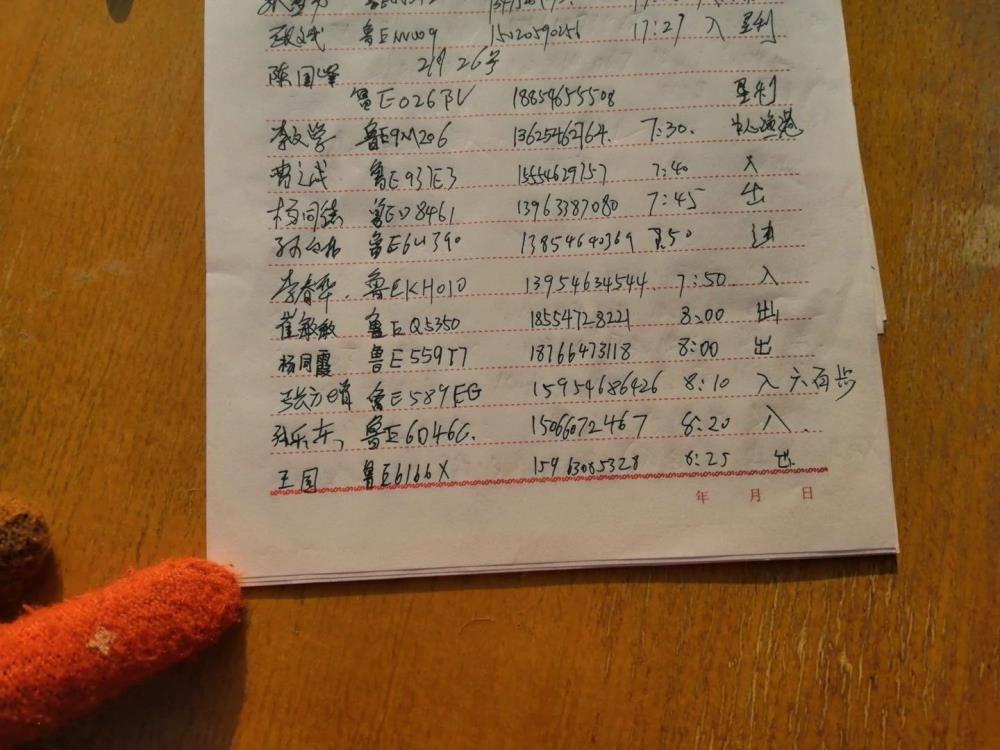 鲁EMU09 15020590256 17:27 入 垦利
2月26号
陈国峰
鲁E026BV 18854655508 垦利
李文学 鲁E9M206 13625462764. 7:30.
曹文成 鲁E937E3 15554629757 7:40 入
杨同德 鲁ED8461 13963387080 7:45 出
鲁E6U390 13854640369 7:50 进
李春华. 鲁EKH010 13954634544. 7:50. 入
崔敏敏 鲁EQ5350 18554728221 8:00 出
杨同霞 鲁E559T7 18766473118 8:00 出
鲁E589EG 15954686426 8:10 入 六百步
孙乐东 鲁E6D46G. 15066072467 8:20 入.
王国 鲁E6166X 15963085328 8:25 出
年 月 日